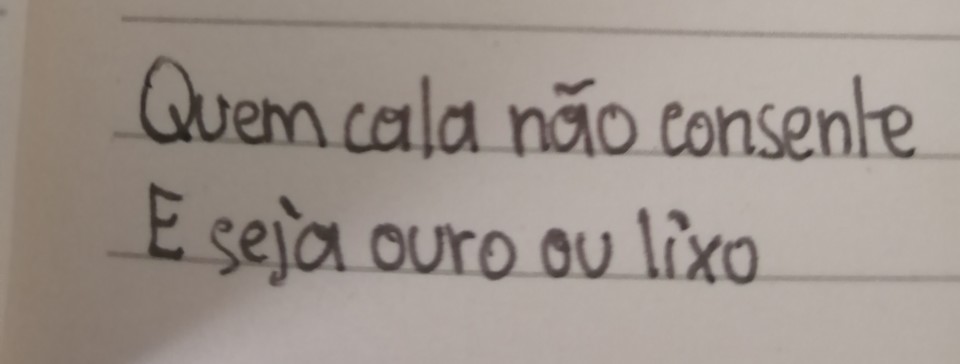 Quem cala não consente
E seja ouro ou lixo